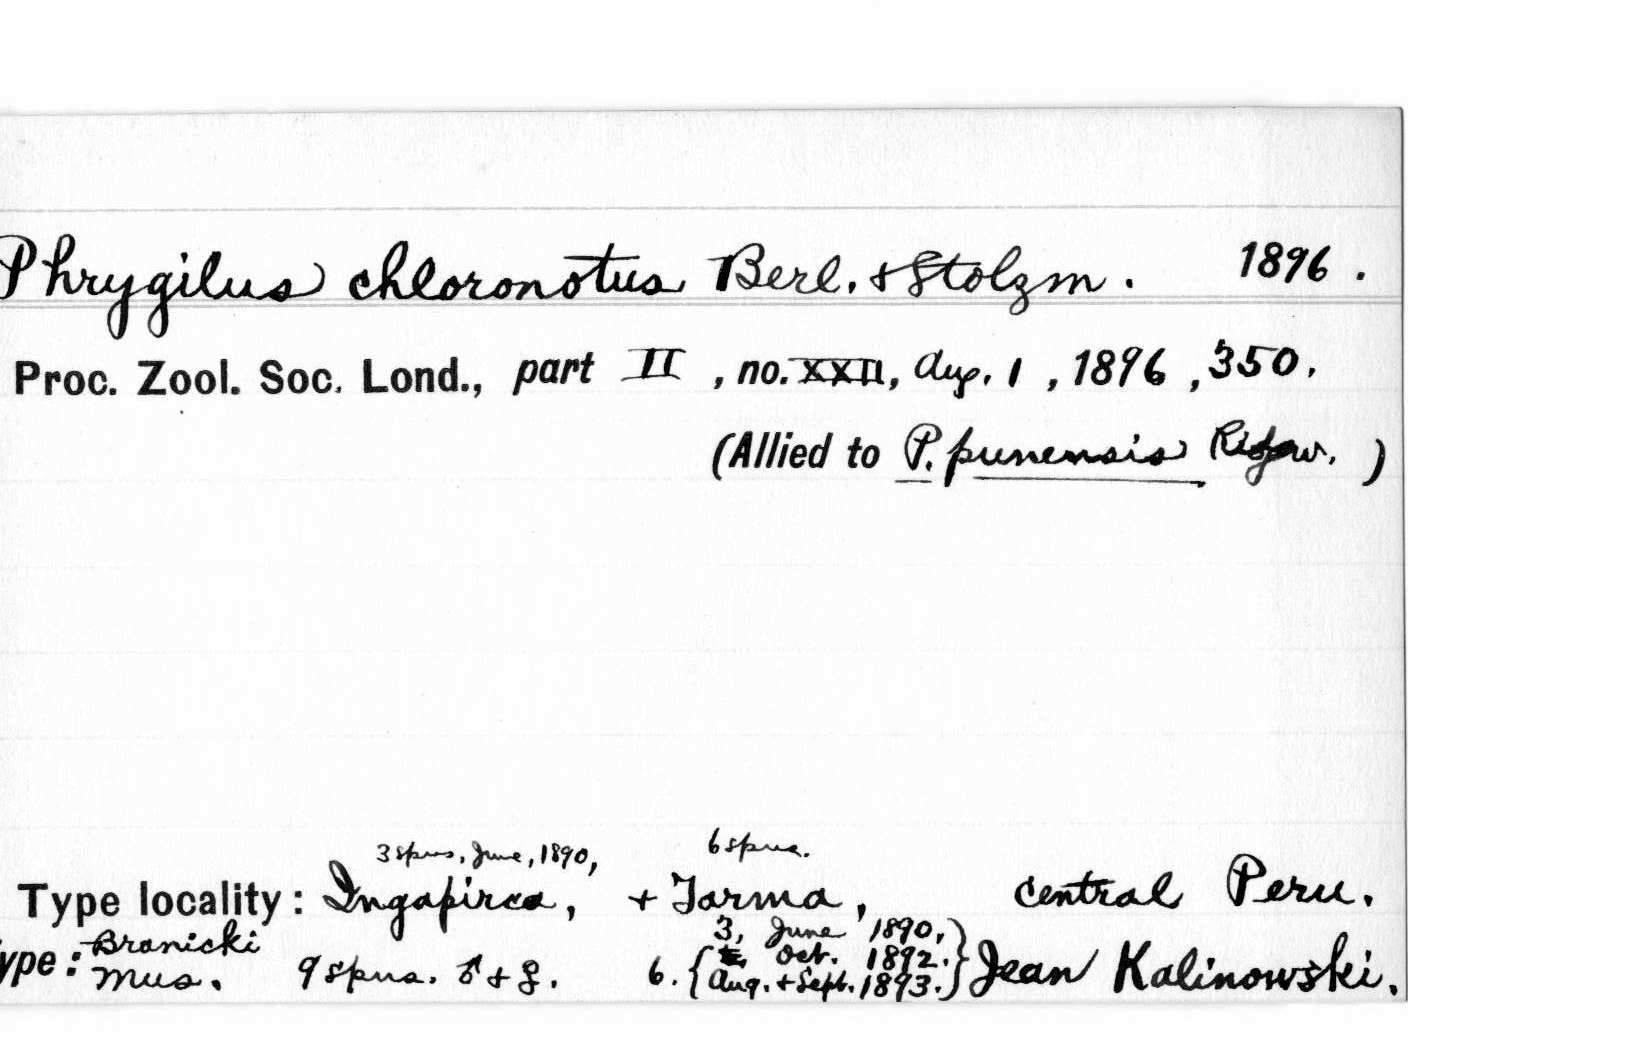 Phrygilus chloronotus Berl. + Stolzm. 1896.
Proc. Zool. Soc. Lond., part II, no. XXII, Aug. 1, 1896, 350.
(Allied to P. punensis Ridgw.)
3 spns, June, 1890, 6 spns.
Type locality: Ingapirca, + Tarma, central Peru.
3, June 1890,
ype: Branicki Oct. 1892.
Mus. 9 spns. ♂ + ♀. 6. { Aug. + Sept. 1893. } Jean Kalinowski.